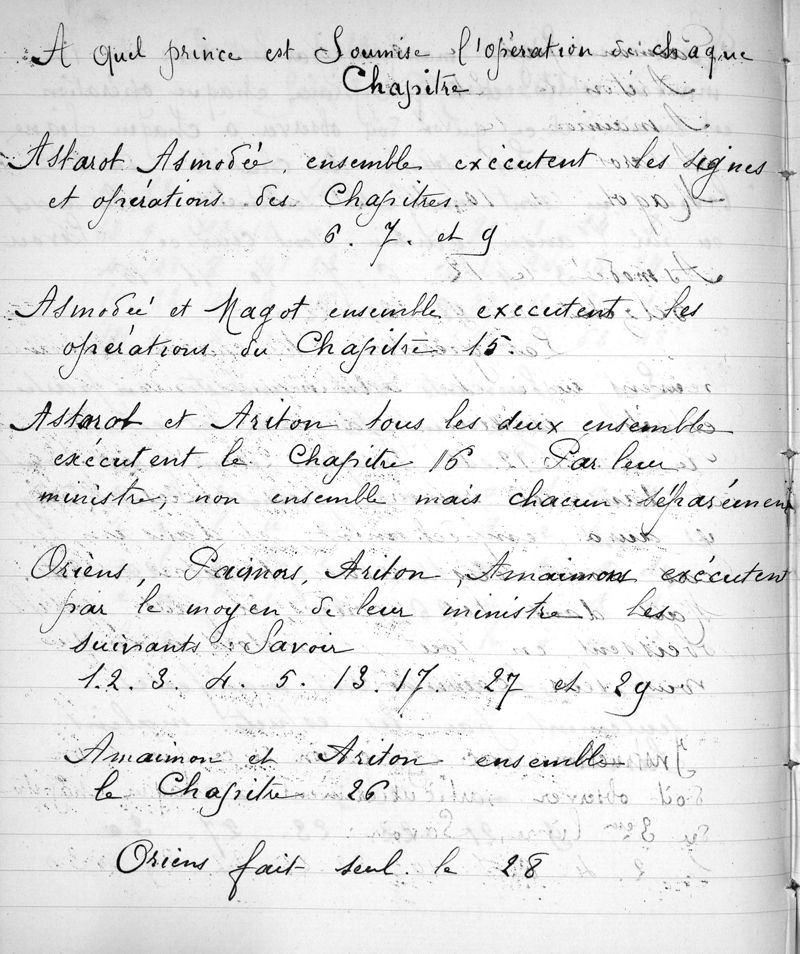 A Quel prince est Soumise l'opération de chaque
Chapitre
Astarot Asmodéé, ensemble exécutent les signes
et opérations des Chapitres.
6. 7. et 9
Asmodéé et Magot ensemble executent les
opérations du Chapitre 15.
Astarot et Ariton tous les deux ensemble
exécutent le Chapitre 16 Par leur
ministre, non ensemble mais chacun séparément
Oriens, Paimons, Ariton, Amaimons exécutent
par le moyen de leur ministre les
suivants Savoir
1. 2. 3. 4. 5. 13. 17. 27 et 29
Amaimon et Ariton ensemble
le Chapitre 26
Oriens fait seul le 28